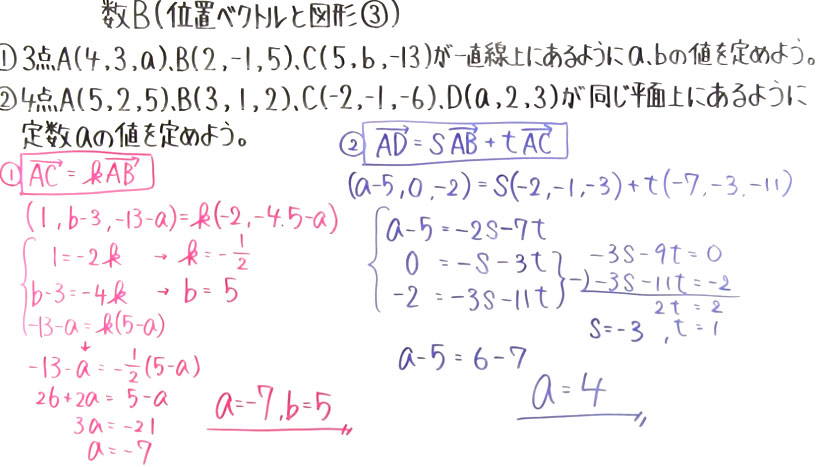 数B(位置ベクトルと図形③)
①3点A(4,3,a).B(2,-1,5).C(5,b,-13)が一直線上にあるようにa.bの値を定めよう。
②4点A(5,2,5).B(3,1,2).C(-2,-1,-6).D(a,2,3)が同じ平面上にあるように
定数aの値を定めよう。
① AC→ = kAB→
(1,b-3,-13-a)=k(-2,-4.5-a)
1=-2k → k=-1/2
b-3=-4k → b=5
-13-a=k(5-a)
↓
-13-a=-1/2(5-a)
26+2a=5-a
3a=-21
a=-7
a=-7.b=5
② AD→ = sAB→ + tAC→
(a-5,0,-2)=s(-2,-1,-3)+t(-7,-3,-11)
a-5=-2s-7t
0=-s-3t
-2=-3s-11t
-3s-9t=0
-)-3s-11t=-2
2t=2
s=-3,t=1
a-5=6-7
a=4